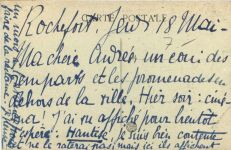 CARTE POSTALE
Rochefort. Jeudi 18 Mai -
Ma chère Andrée, un coin des
remparts et les promenades en
dehors de la ville. Hier soir : ciné-
ma ! J'ai vu affiché pour bientôt
"Hantise", je suis bien contente
et ne le raterai pas, mais ici ils affichent